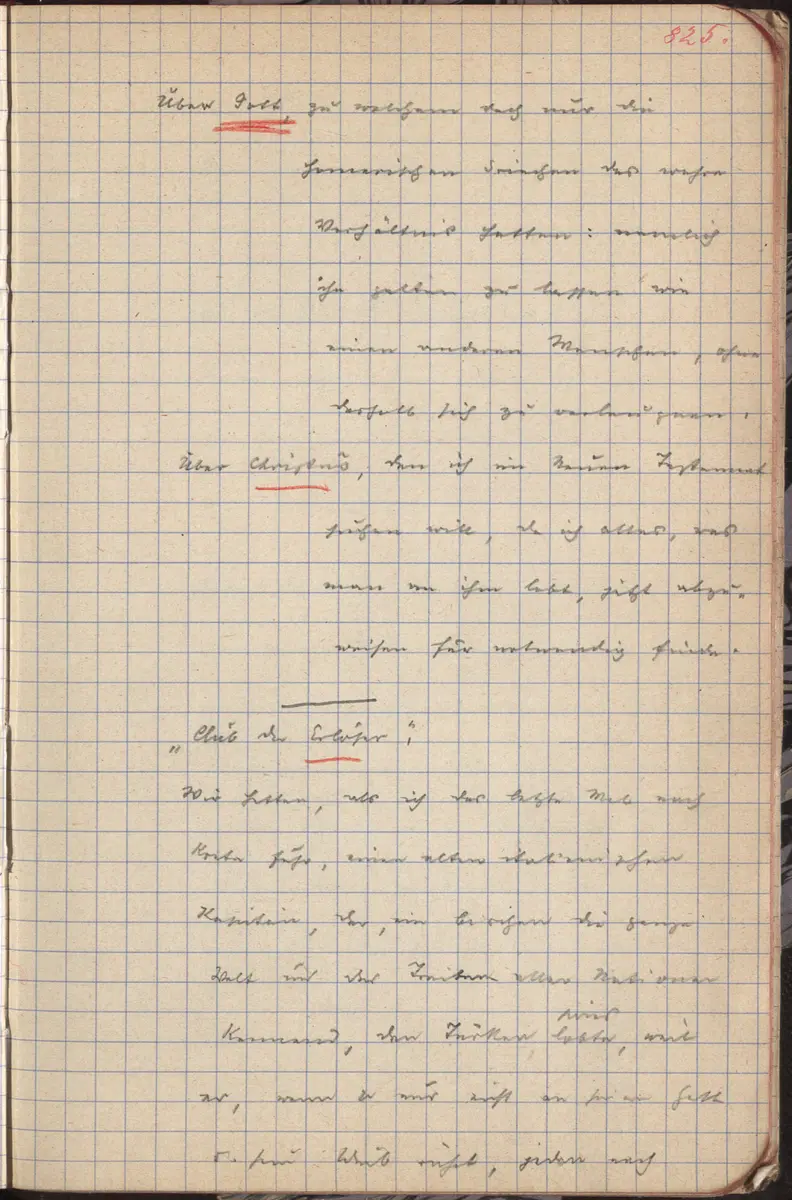 825.
Über Gott, zu welchem doch nur die
homerischen Griechen das wahre
Verhältnis hatten: nemlich
ihn gelten zu lassen wie
einen anderen Menschen, ohne
deshalb sich zu verleugnen.
Über Christus, den ich im Neuen Testament
suchen will, da ich alles, was
man an ihm lobt, jetzt abzu„
weisen für notwendig finde.
„Club der Erlöser":
Wir hatten, als ich das letzte Mal nach
Kreta fuhr, einen alten italienischen
Kapitän, der, ein bischen die ganze
Welt und das Treiben aller Nationen
pries
Kennend, den Türken lobte, weil
er, wenn er nur nicht an seinen Gott
u. sein Weib rührt, jeden nach